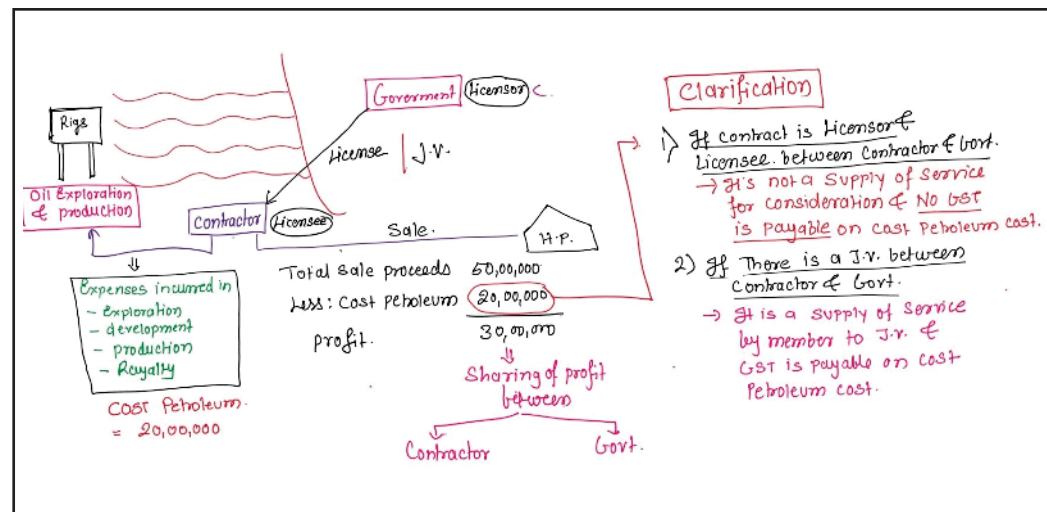 Rigs
Oil Exploration
& production
Goverment Licensor
License J.V.
Contractor Licensee
Sale.
H.P.
Expenses incurred in
- Exploration
- development
- production
- Royalty
Cost Petroleum.
= 20,00,000
Total sale proceeds 50,00,000
Less: Cost Petroleum 20,00,000
profit. 30,00,000
Sharing of profit
between
Contractor Govt.
Clarification
1) If contract is Licensor &
Licensee between Contractor & Govt.
→ It's not a Supply of Service
for consideration & No GST
is payable on cost Petroleum cost.
2) If There is a J.V. between
Contractor & Govt.
→ It is a supply of Service
by member to J.V. &
GST is payable on cost
Petroleum cost.